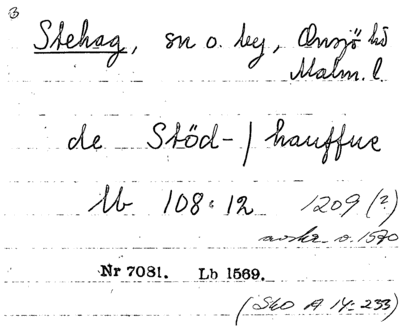 Stehag, sn o. by, Onsjö hd
Malm. l.
de Stöd-/hauffue
Ub 108:12 1209 (?)
avskr. o. 1570
Nr 7081. Lb 1569.
(SkO A 14:233)